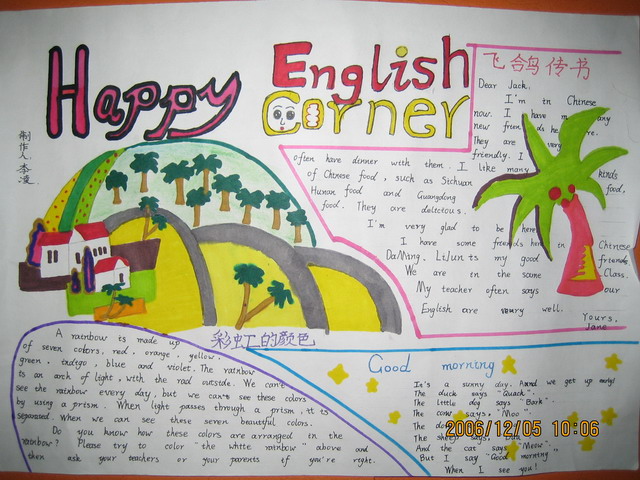 Happy English Corner
制作人:李凌
飞鸽传书
Dear Jack,
I'm in Chinese
now. I have many
new friends here.
They are very
friendly. I
often have dinner with them. I like many kinds
of Chinese food, such as Sichuan food,
Hunan food and Guangdong
food. They are delicious.
I'm very glad to be here
I have some friends here in Chinese
DaMing. LiJun is my good friends
We are in the same Class.
My teacher often says our
English are very well.
Yours,
Jane
彩虹的颜色
A rainbow is made up
of seven colors, red, orange, yellow,
green, indigo, blue and violet. The rainbow
is an arch of light, with the red outside. We can't
see the rainbow every day, but we can see these colors
by using a prism. When light passes through a prism, it is
separated. When we can see these seven beautiful colors.
Do you know how these colors are arranged in the
rainbow? Please try to color "the white rainbow" above and
then ask your teachers or your parents if you're right.
Good morning
It's a sunny day. And we get up early!
The duck says "Quack".
The little dog says "Bark".
The cow says, "Moo".
The
The sheep says, "Baa
And the cat says "Meow".
But I say "Good morning"
When I see you!
2006/12/05 10:06